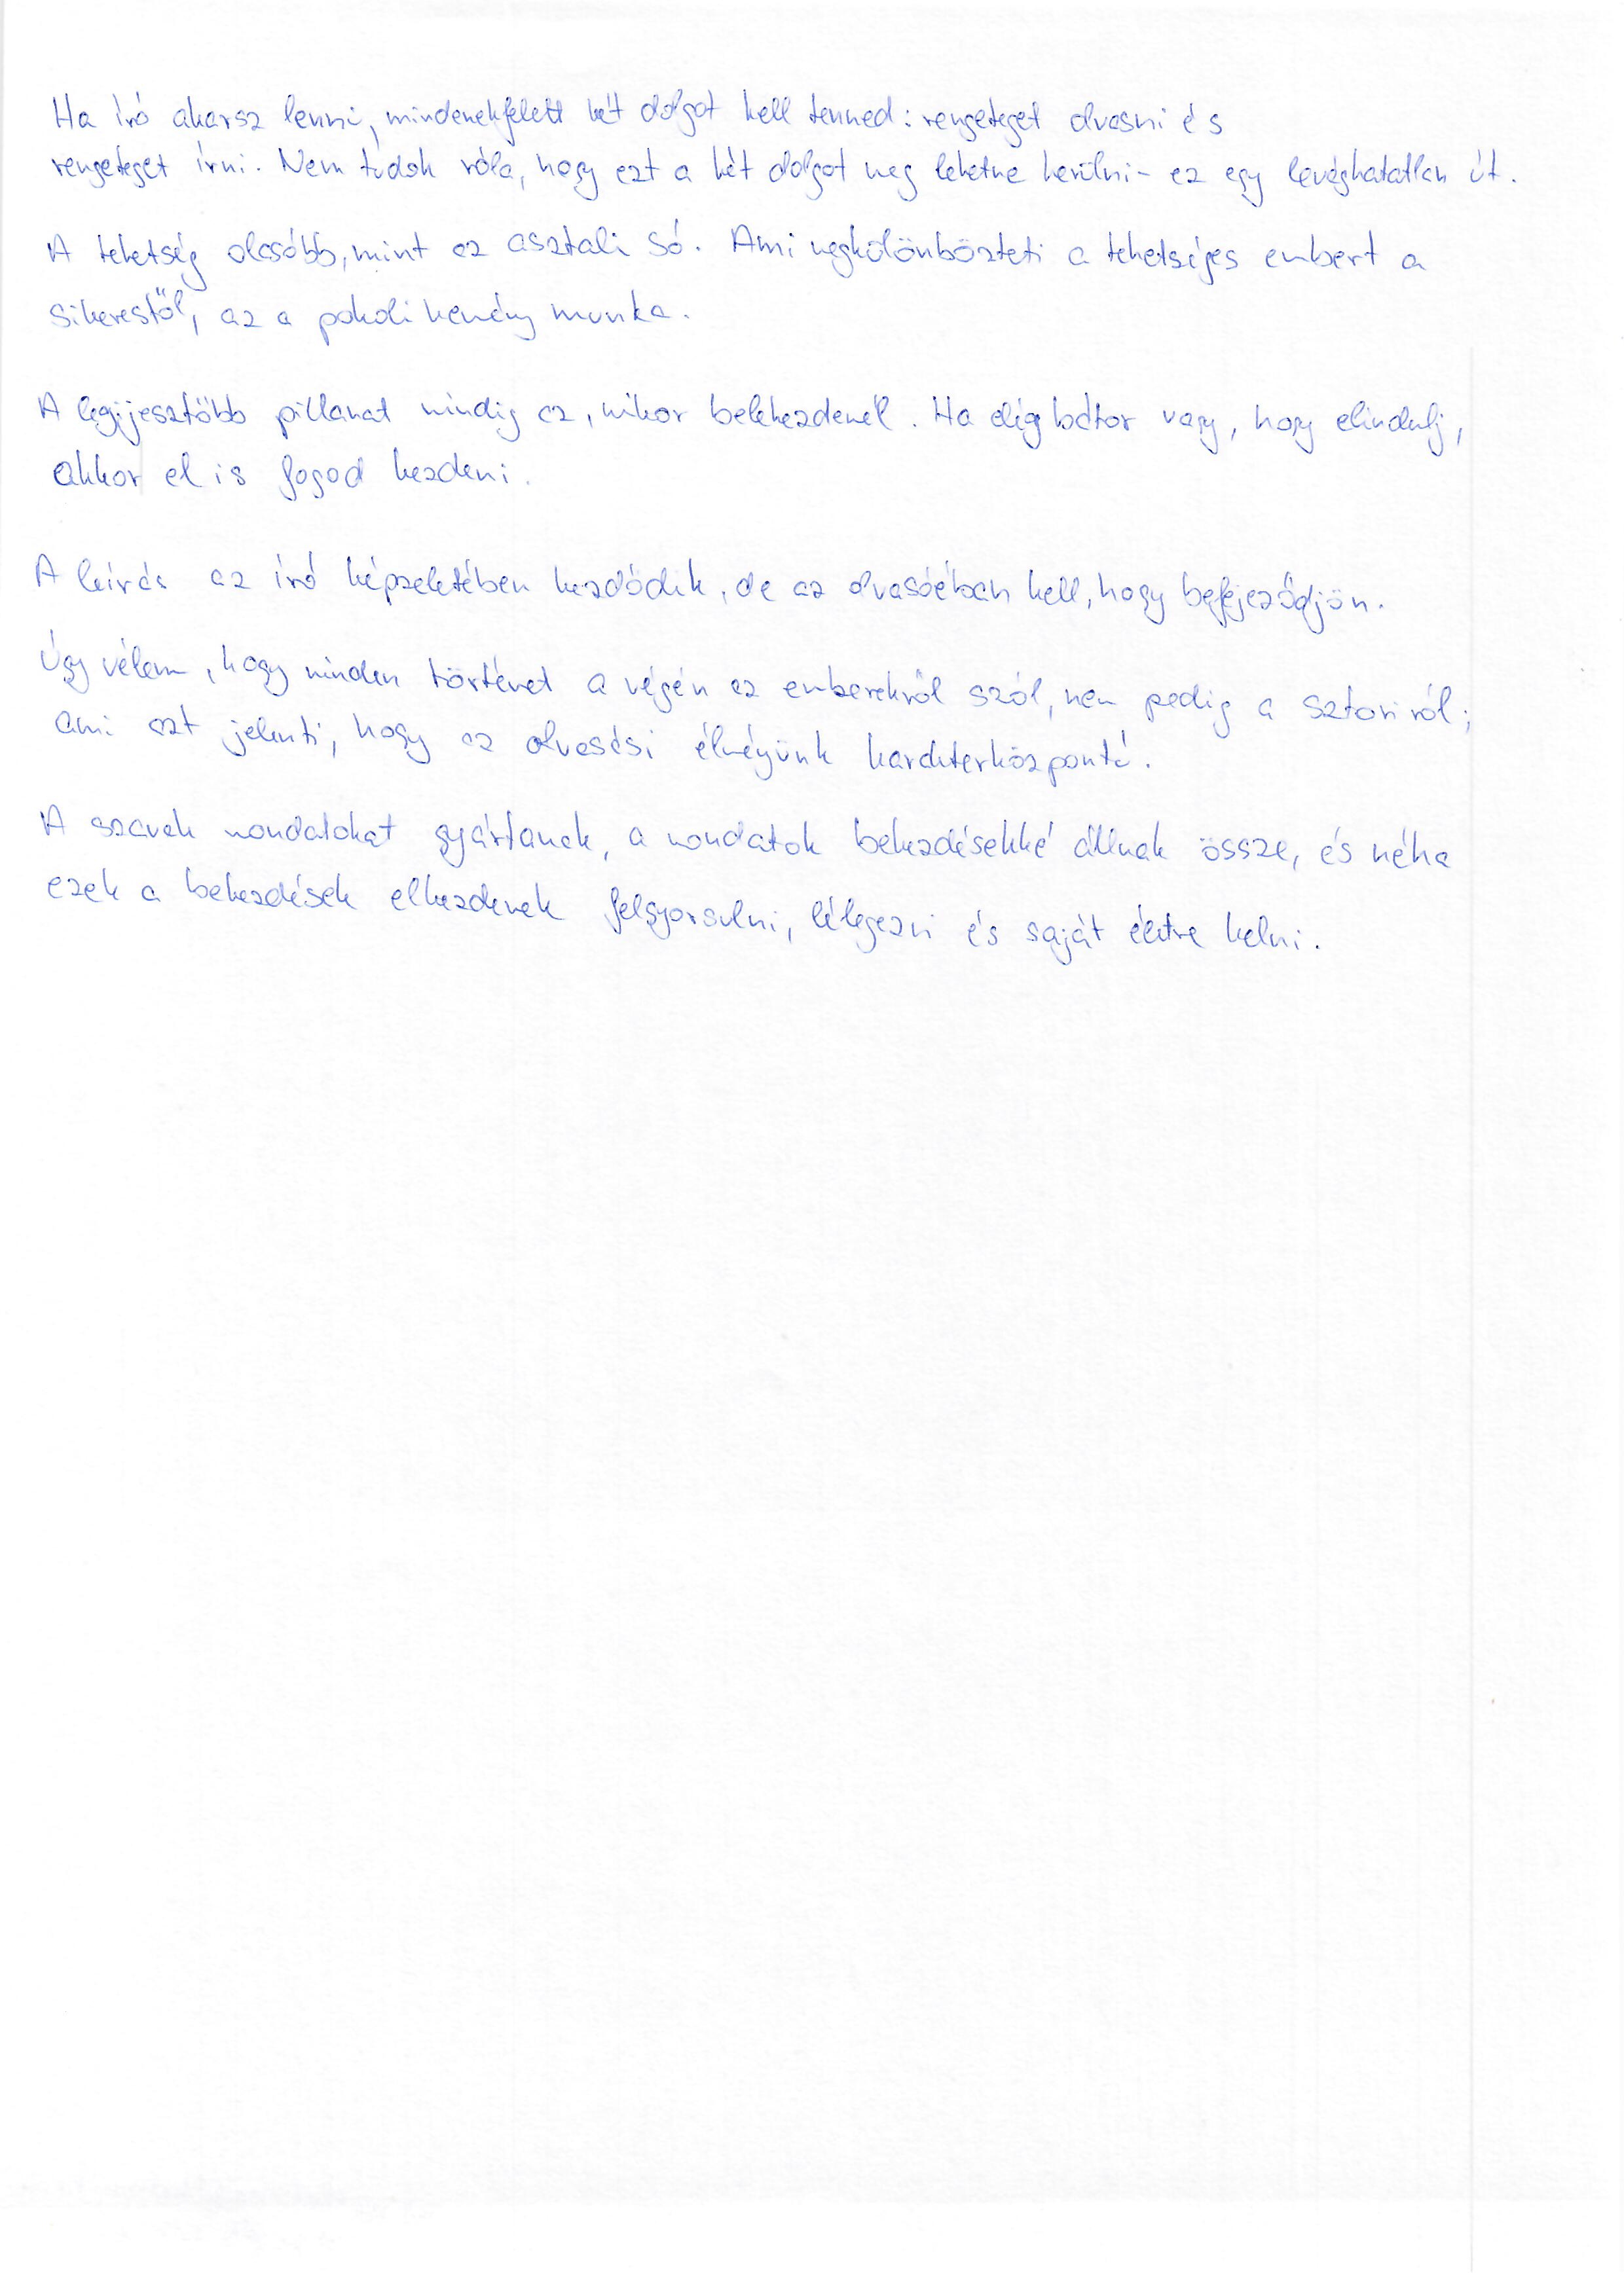 Ha író akarsz lenni, mindenekfelett két dolgot kell tenned: rengeteget olvasni és
rengeteget írni. Nem tudok róla, hogy ezt a két dolgot meg lehetne kerülni - ez egy levághatatlan út.
A tehetség olcsóbb, mint az asztali só. Ami megkülönbözteti a tehetséges embert a
sikerestől, az a pokoli kemény munka.
A legijesztőbb pillanat mindig az, mikor belekezdenél. Ha elég bátor vagy, hogy elindulj,
akkor el is fogod kezdeni.
A leírás az író képzeletében kezdődik, de az olvasóéban kell, hogy befejeződjön.
Úgy vélem, hogy minden történet a végén az emberekről szól, nem pedig a sztoriról;
ami azt jelenti, hogy az olvasási élményünk karakterközpontú.
A szavak mondatokat gyártanak, a mondatok bekezdésekké állnak össze, és néha
ezek a bekezdések elkezdenek felgyorsulni, lélegezni és saját életre kelni.